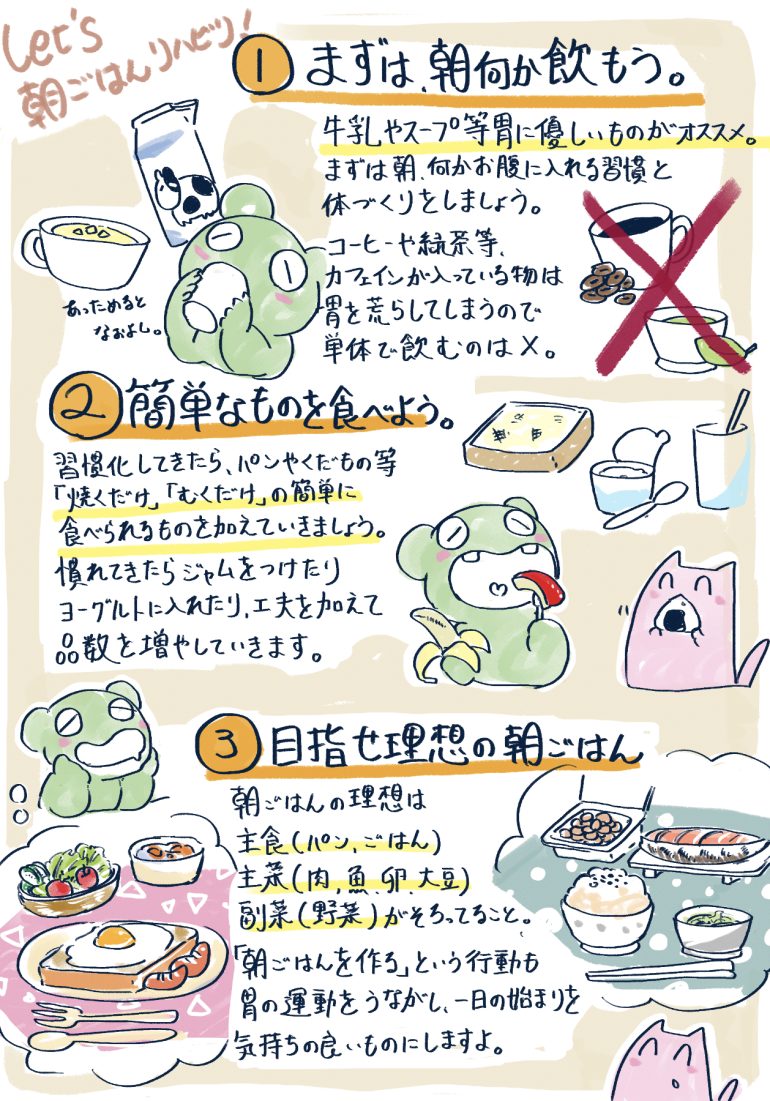 Let's
朝ごはんリハビリ!
1 まずは、朝何か飲もう。
牛乳やスープ等胃に優しいものがオススメ。
まずは朝、何かお腹に入れる習慣と
体づくりをしましょう。
コーヒーや緑茶等、
カフェインが入っている物は
胃を荒らしてしまうので
単体で飲むのは×。
あっためると
なおよし。
2 簡単なものを食べよう。
習慣化してきたら、パンやくだもの等
「焼くだけ」「むくだけ」の簡単に
食べられるものを加えていきましょう。
慣れてきたらジャムをつけたり
ヨーグルトに入れたり、工夫を加えて
品数を増やしていきます。
3 目指せ理想の朝ごはん
朝ごはんの理想は
主食(パン、ごはん)
主菜(肉、魚、卵、大豆)
副菜(野菜)がそろってること。
「朝ごはんを作る」という行動も
胃の運動をうながし、一日の始まりを
気持ちの良いものにしますよ。